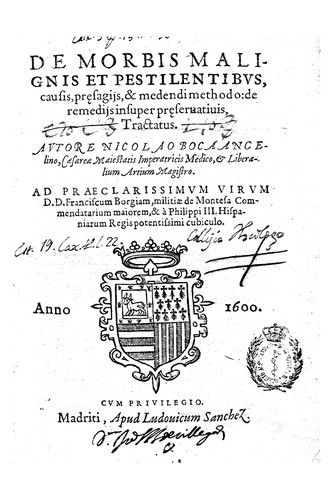 DE MORBIS MALI-
GNIS ET PESTILENTIBVS,
causis, pręsagijs, & medendi methodo: de
remedijs insuper pręseruatiuis,
Tractatus.
AVTORE NICOLAO BOCANGE-
lino, Cæsareæ Maiestatis Imperatricis Medico, & Libera-
lium Artium Magistro.
AD PRAECLARISSIMVM VIRVM
D.D. Franciscum Borgiam, militiæ de Montesa Com-
mendatarium maiorem, & à Philippi III. Hispa-
niarum Regis potentissimi cubiculo.
Est. 19. Cax. 22.
Anno 1600.
CVM PRIVILEGIO.
Madriti, Apud Ludouicum Sanchez.